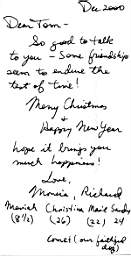 Dec 2000
Dear Tom -
So good to talk
to you - Some friendships
seem to endure the
test of time!
Merry Christmas
+
Happy New Year
hope it brings you
much happiness!
Love,
Monica, Richard
Mariah Christina Sandy
(8 1/2) (26) (22) 24
Comet (our faithful
dog)